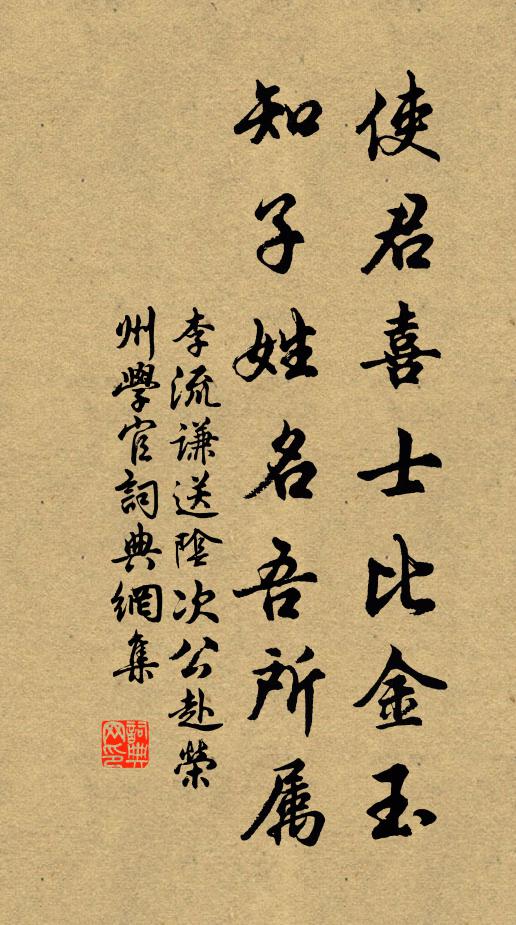 使君喜士比金玉
知子姓名吾所属
李流谦送陰次公赴榮
州學官詞典網集
詞典
网印